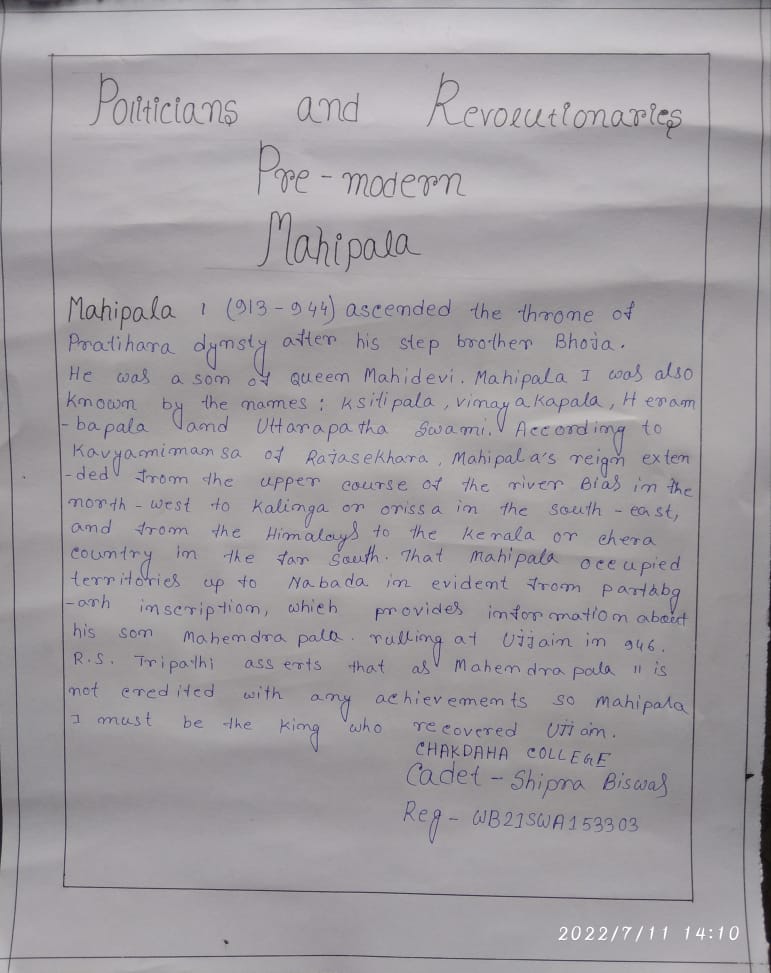 Politicians and Revolutionaries
Pre-modern
Mahipala
Mahipala 1 (913-944) ascended the throne of
Pratihara dynsty after his step brother Bhoja.
He was a son of Queen Mahidevi. Mahipala I was also
known by the names: Ksitipala, vinayakapala, Heram
-bapala and Uttarapatha Swami. According to
Kavyamimansa of Rajasekhara, Mahipala's reign exten
-ded from the upper course of the river Bias in the
north-west to Kalinga or orissa in the south-east,
and from the Himalays to the Kerala or chera
country in the far south. That mahipala occupied
territories up to Nabada in evident from partabg
-arh inscription, which provides information about
his son Mahendra pala. rulling at Ujjain in 946.
R.S. Tripathi asserts that as Mahendra pala II is
not credited with any achievements so Mahipala
I must be the king who recovered Ujjain.
CHAKDAHA COLLEGE
Cadet - Shipra Biswas
Reg - WB21SWA153303
2022/7/11 14:10